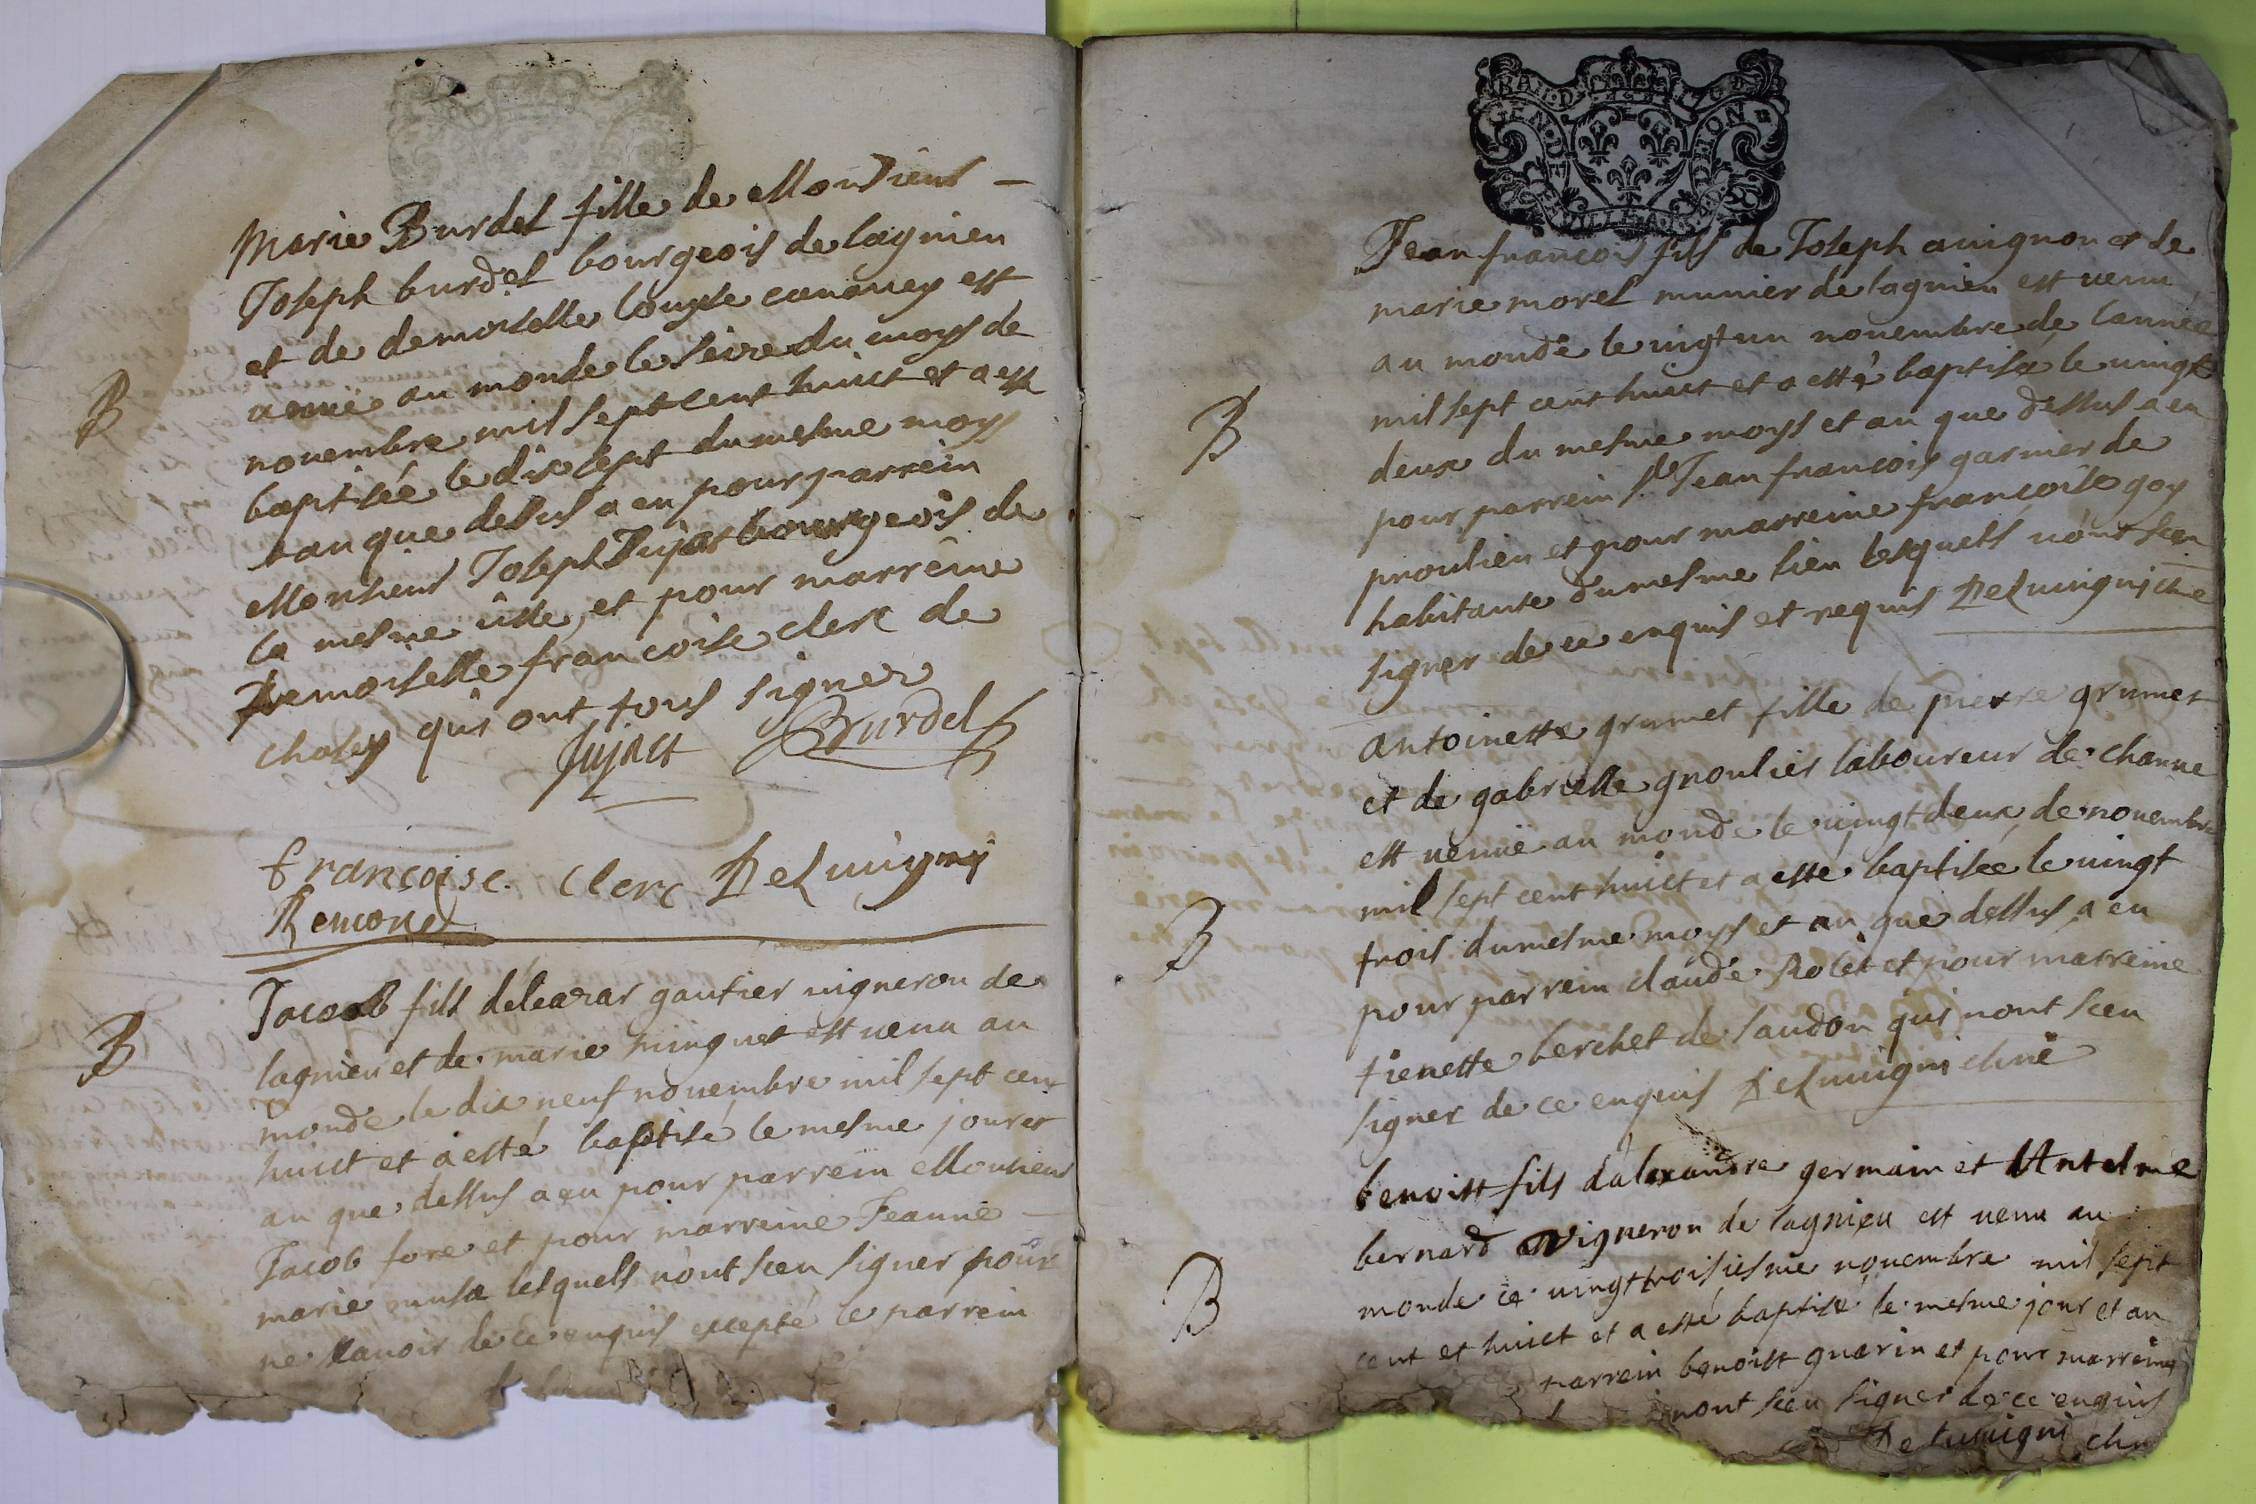 Marie Burdet fille de Monsieur
Joseph burdet bourgeois de lagnieu
et de demoiselle louyse est
venüe au monde le seize du moys de
novembre mil sept cent huict et a esté
baptisée le dix sept du mesme moys
et an que dessus a eu pour parrein
Monsieur Joseph Jujat bourgeois de
la mesme ville, et pour marreine
Demoiselle francoise clerc de
choley qui ont tous signer
Jujact Burdet
françoise. clerc DeLuvigny
Remond
B
Jacob fils déleazar gautier vigneron de
lagnieu et de marie est venu au
monde le dix neuf novembre mil sept cent
huict et a esté baptisé le mesme jour et
an que dessus a eu pour parrein Monsieur
Jacob fore et pour marreine Jeanne
marie lesquels n'ont sceu signer pour
ne scavoir de ce enquis excepté le parrein
B
GEN DE BOURG
Jean francois fils de Joseph avignon et de
marie morel munier de lagnieu est venu
au monde le vingt un novembre de lannée
mil sept cent huict et a esté baptisé le vingt
deux du mesme moys et an que dessus a eu
pour parrein Sr Jean francois garnier de
proulieu et pour marreine francoise goy
habitante du mesme lieu lesquels n'ont sceu
signer de ce enquis et requis DeLuvigny chne
B
antoinette grumet fille de pierre grumet
et de gabrielle gnoulier laboureur de charne
est venüe au monde le vingt deux de novembre
mil sept cent huict et a esté baptisée le vingt
trois du mesme moys et an que dessus a eu
pour parrein claude Rolet et pour marreine
tienette berchet de saudon qui nont sceu
signer de ce enquis DeLuvigni chne
B
benoist fils dalexandre germain et Antelme
bernard vigneron de lagnieu est venu au
monde ce vingt troisiesme novembre mil sept
cent et huict et a esté baptisé le mesme jour et an
parrein benoist guarin et pour marreine
nont sceu signer de ce enquis
DeLuvigni chne
B